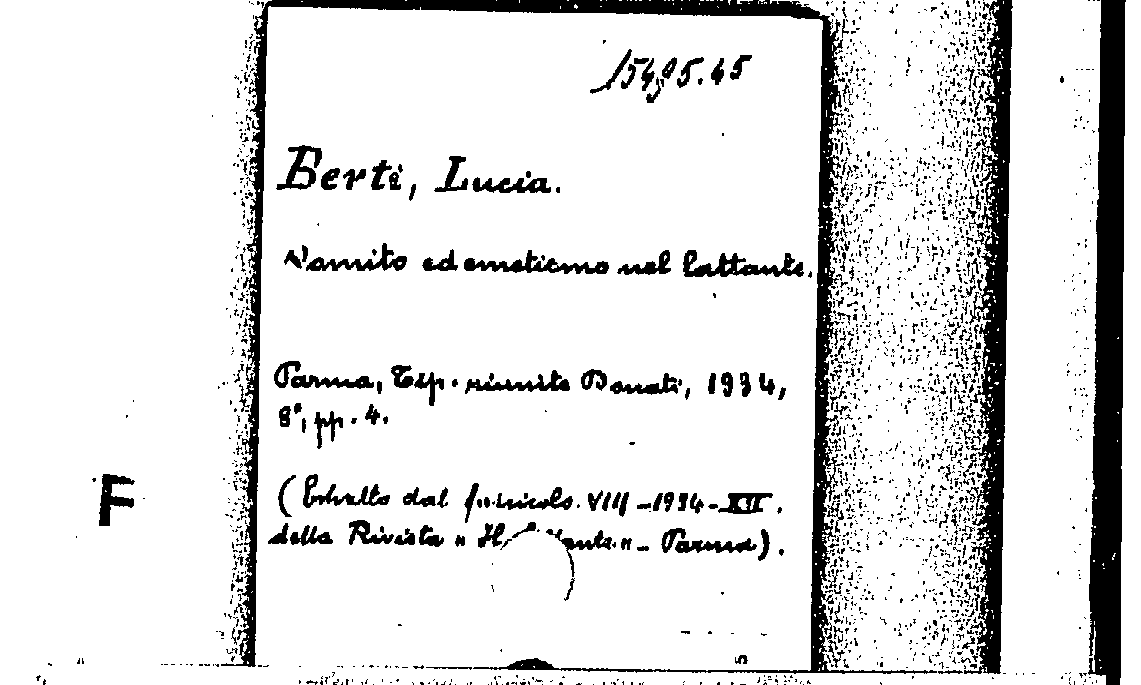 15495.45
Berti, Lucia.
Vomito ed emetismo nel lattante.
Parma, Tip. riunite Donati, 1934,
8°, pp. 4.
(Estratto dal fascicolo VIII - 1934 - XII.
della Rivista "Il lattante" - Parma).
F